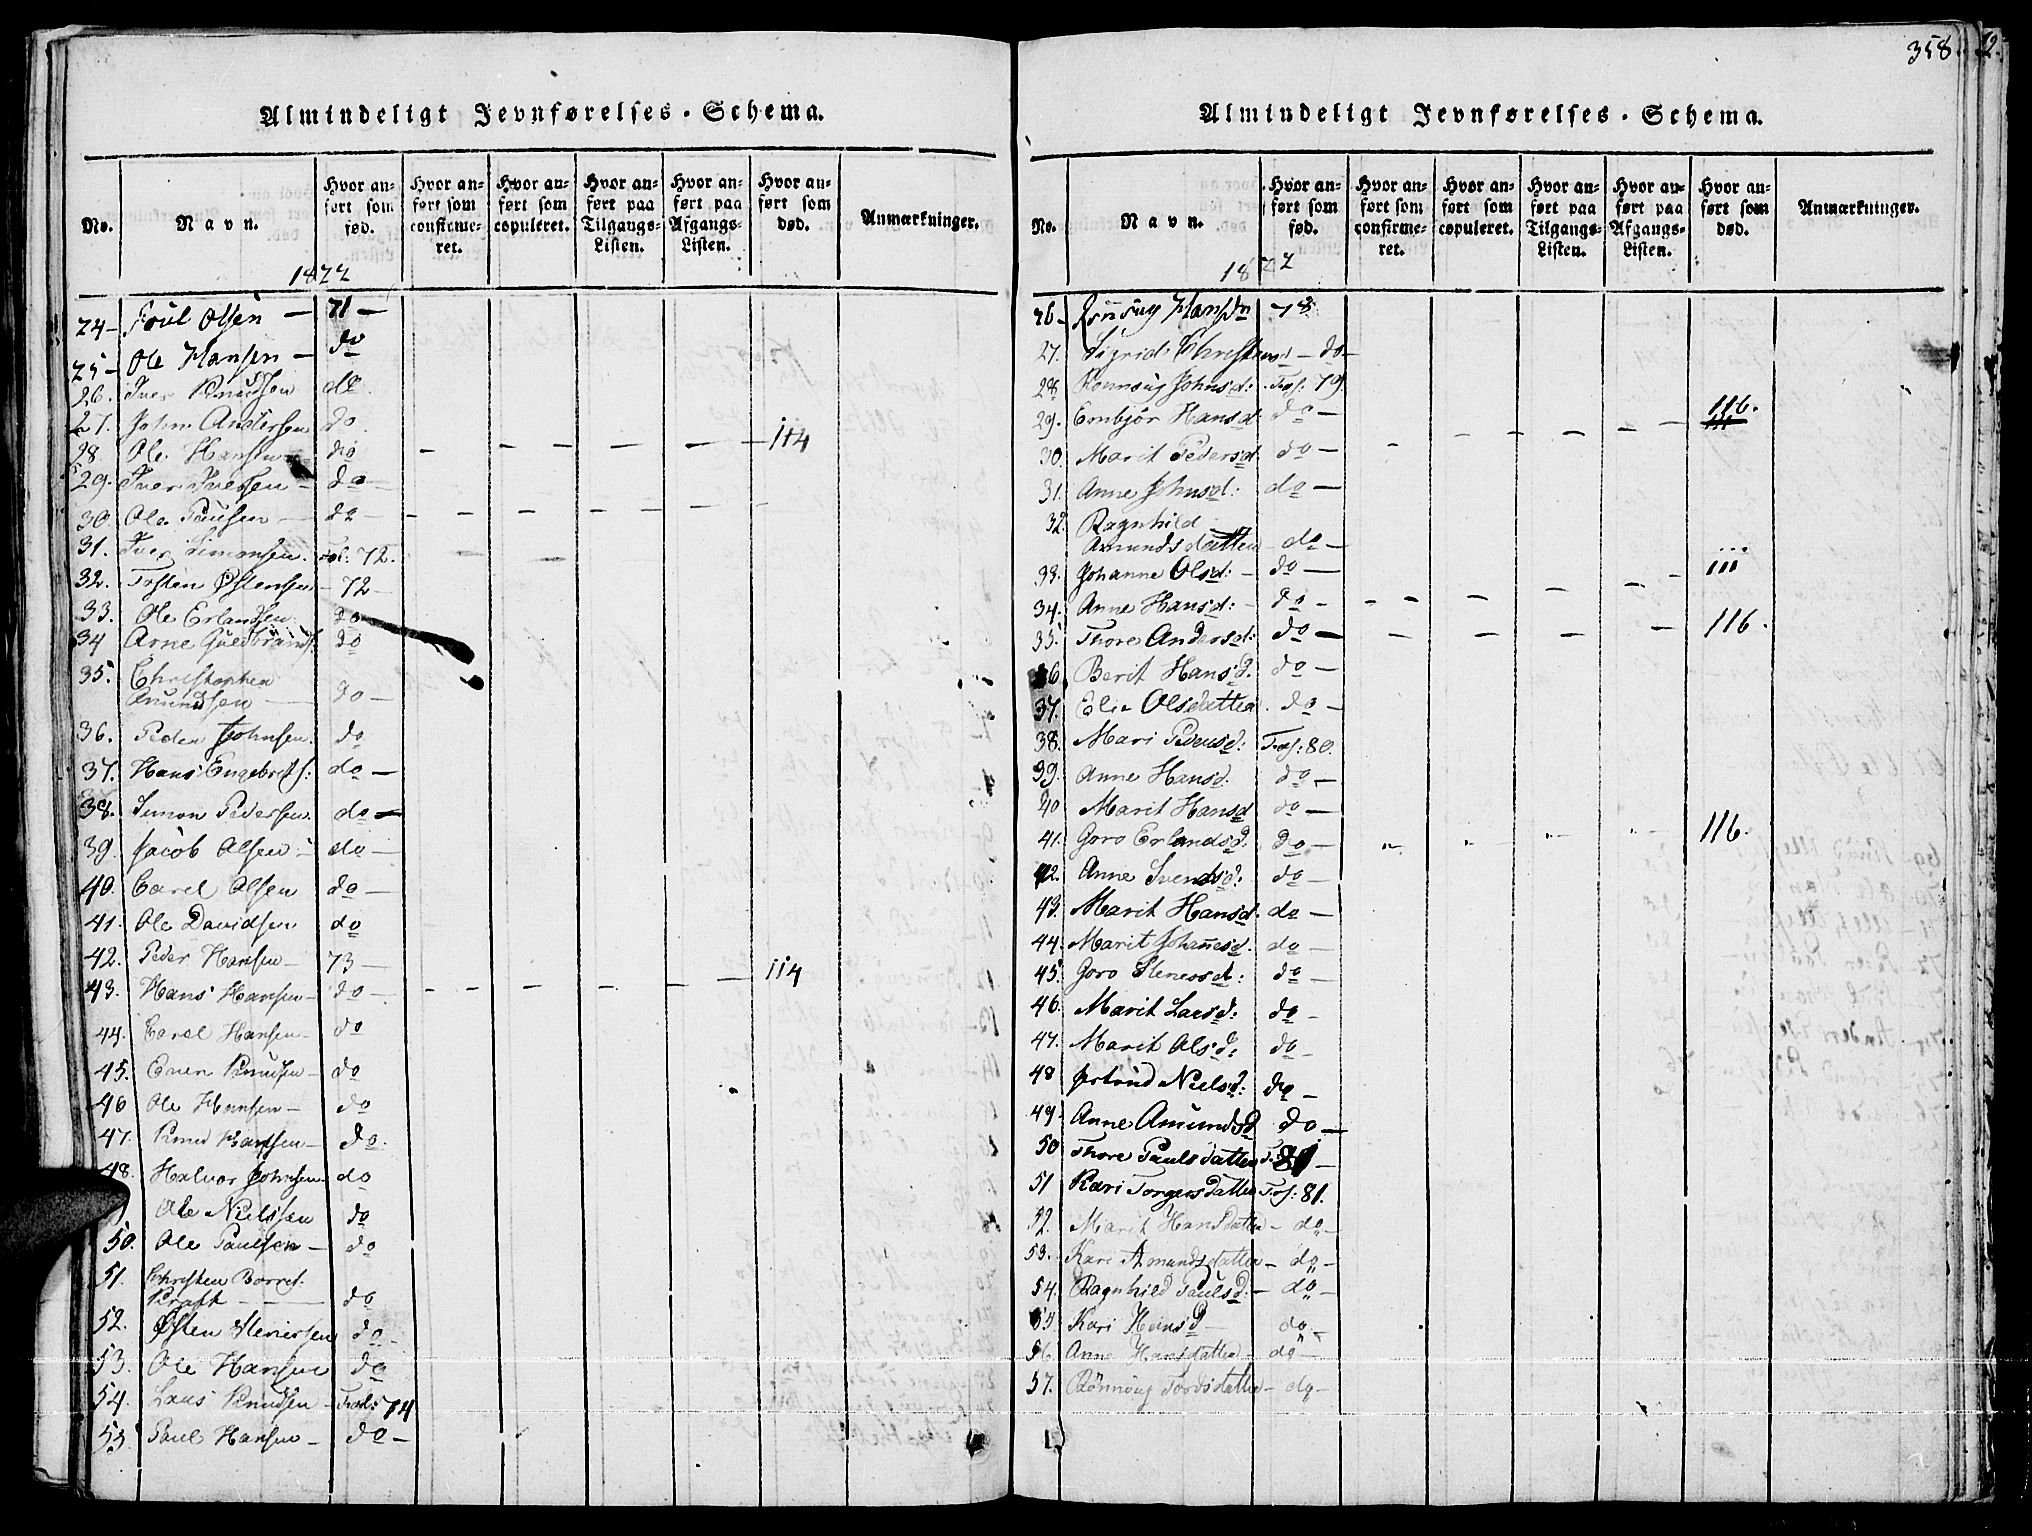 358.
12.
Almindeligt Jevnførelses-Schema.
No. Navn. Hvor anført som fød. Hvor anført som confirmeret. Hvor anført som copuleret. Hvor anført paa Tilgangs-Listen. Hvor anført paa Afgangs-Listen. Hvor anført som død. Anmærkninger.
1822
24 – Poul Olsen — 71 —
25 – Ole Hansen — do
26. Iver Knudsen do
27. John Andersen do
28. Ole Hansen do — — — — — 114
29. Iver Iversen — do
30. Ole Paulsen — do — — — — — —
31. Iver Simonsen. Fol: 72.
32. Tosten Østensen – 72 –
33. Ole Erlandsen do
34 Arne Guldbrands: do
35. Christopher
Amundsen — do —
36. Peder Johnsen. do
37. Hans Engebrets: do —
38. Simon Pedersen do —
39. Jacob Olsen – do —
40. Carel Olsen do —
41. Ole Davidsen do
42. Peder Hansen – 73 —
43. Hans Hansen – do — — — — — — — 114
44. Carel Hansen – do
45. Even Knudsen – do
46 Ole Hansen – do
47. Knud Hansen – do.
48. Halvor Johnsen do
Ole Nielssen do
50. Ole Paulsen – do
51. Christen Borret:
Kraft — — do
52. Østen Steniersen do –
53. Ole Hansen do
54. Lars Knudsen – Fol: 74
55. Paul Hansen – do –
Almindeligt Jevnførelses-Schema.
No. Navn. Hvor anført som fød. Hvor anført som confirmeret. Hvor anført som copuleret. Hvor anført paa Tilgangs-Listen. Hvor anført paa Afgangs-Listen. Hvor anført som død. Anmærkninger.
1822
26 – Rønnoug Hansdr 78
27. Sigrid Christensd – do –
28 Rønnoug Johnsd: Fol: 79.
29. Embjør Hansd: do — 116.
30. Marit Pedersd. do — — — — — —
31. Anne Johnsd: do —
32. Ragnhild
Amundsdatter – do —
33. Johanne Olsd: – do — 111
34. Anne Hansd: – do – — — — — —
35. Thore Andersd: do — — — — — 116.
36 Berit Hansd. do —
37. Eli Olsdatter. do —
38. Mari Pedersd: Fol: 80.
39. Anne Hansd: do —
40 Marit Hansd do —
41. Goro Erlandsd. do — 116.
42. Anne Svendsd: do —
43. Marit Hansd. do —
44. Marit Johannesd. do —
45. Goro Stenersd: do —
46. Marit Larsd: do –
47. Marit Olsd: do –
48 Jertrud Nielsd: do –
49. Anne Amundsd do —
50 Thore Paulsdatter F: 81 —
51 Kari Torgersdatter Fol: 81.
52. Marit Hansdatter – do –
53. Kari Amundsdatter – do –
54. Ragnhild Paulsd: – do –
55 Kari Hansd — do –
56. Anne Hansdatter – do —
57. Rønnoug Tordsdatter – do –